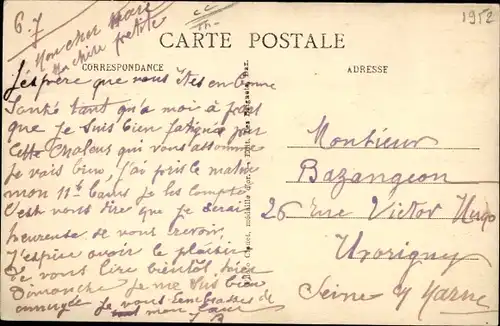 6-7
1952
Mon cher Mari
ma chère petite
CARTE POSTALE
CORRESPONDANCE
ADRESSE
J'espère que vous êtes en bonne
santé tant qu'a moi à part
que Je suis bien fatiguée par
cette chaleur qui vous assomme
je vais bien, j'ai pris le matin
mon 11e bains je les compte
c'est vous dire que je serai
heureuse de vous revoir
J'espère avoir le plaisir
de vous lire bientôt, hier
Dimanche je me suis bien
ennuyée je vous embrasses de
mon cœur
Monsieur
Bazangeon
26 rue Victor Hugo
Seine s/ Marne